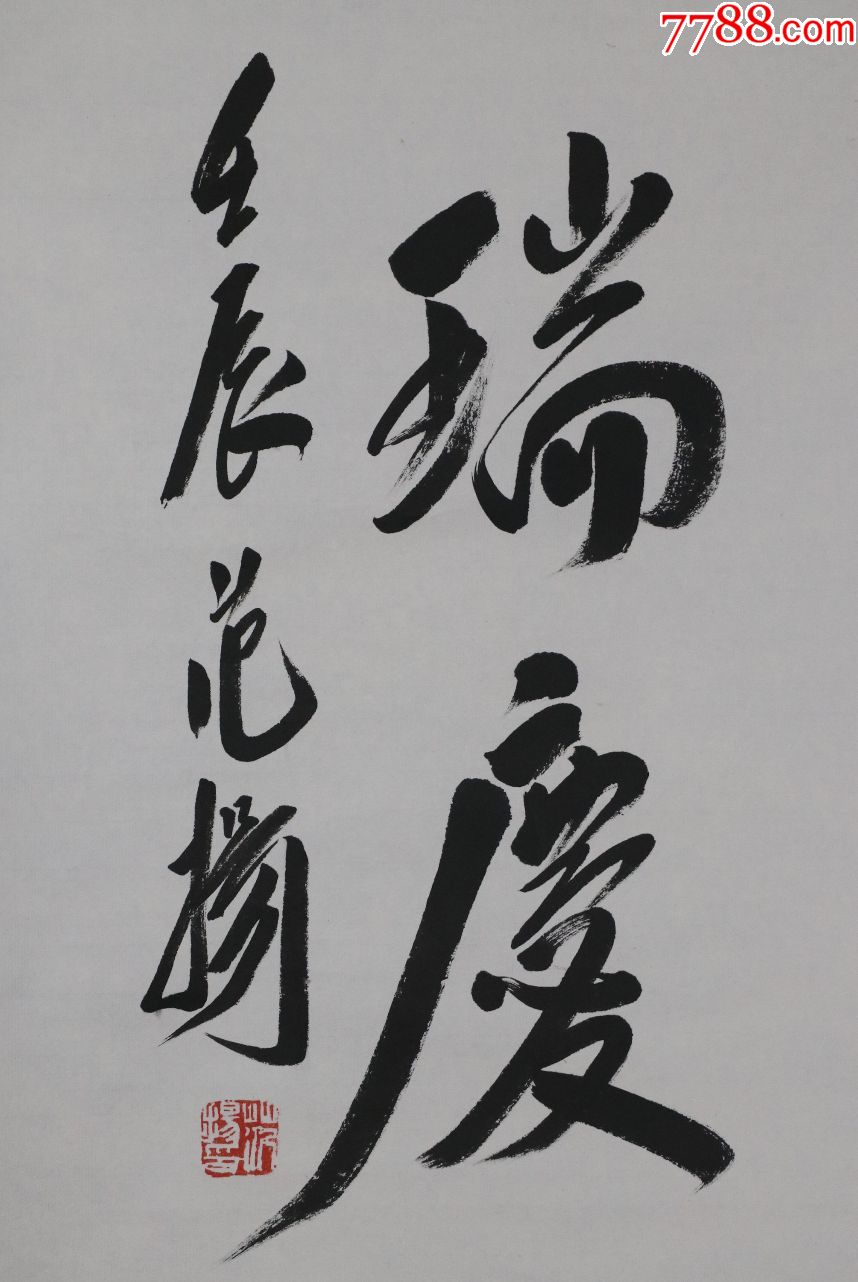 7788.com
瑞慶
壬辰范揚
范揚印